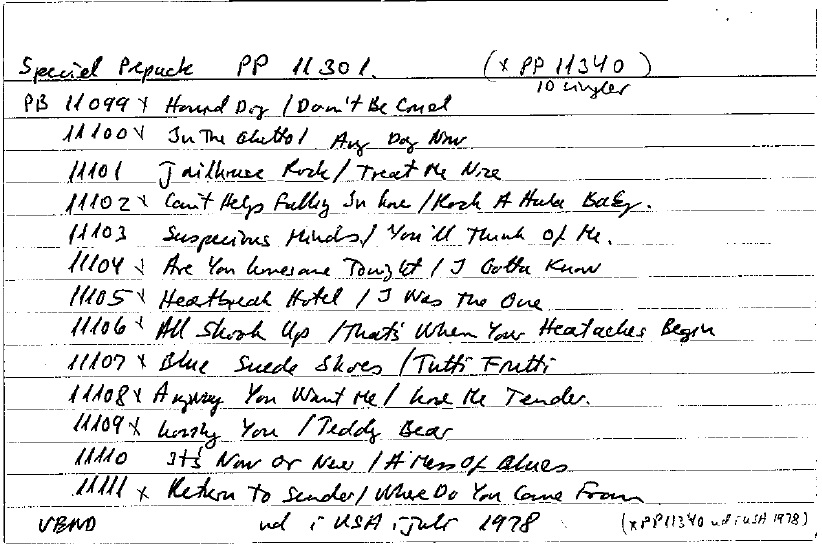 Special Prepack PP 11301. (x PP 11340)
10 singler
PB 11099 x Hound Dog / Don't Be Cruel
11100 x In The Ghetto / Any Day Now
11101 Jailhouse Rock / Treat Me Nice
11102 x Can't Help Falling In Love / Rock A Hula Baby.
11103 Suspecious Minds / You'll Think Of Me.
11104 x Are You Lonesome Tonight / I Gotta Know
11105 x Heartbreak Hotel / I Was The One
11106 x All Shook Up / That's When Your Heataches Begin
11107 x Blue Suede Shoes / Tutti Frutti
11108 x Anyway You Want Me / Love Me Tender.
11109 x Loving You / Teddy Bear
11110 It's Now Or Never / A Mess Of Blues
11111 x Return To Sender / Where Do You Come From
ud i USA i Juli 1978 (x PP 11340 ud i USA 1978)